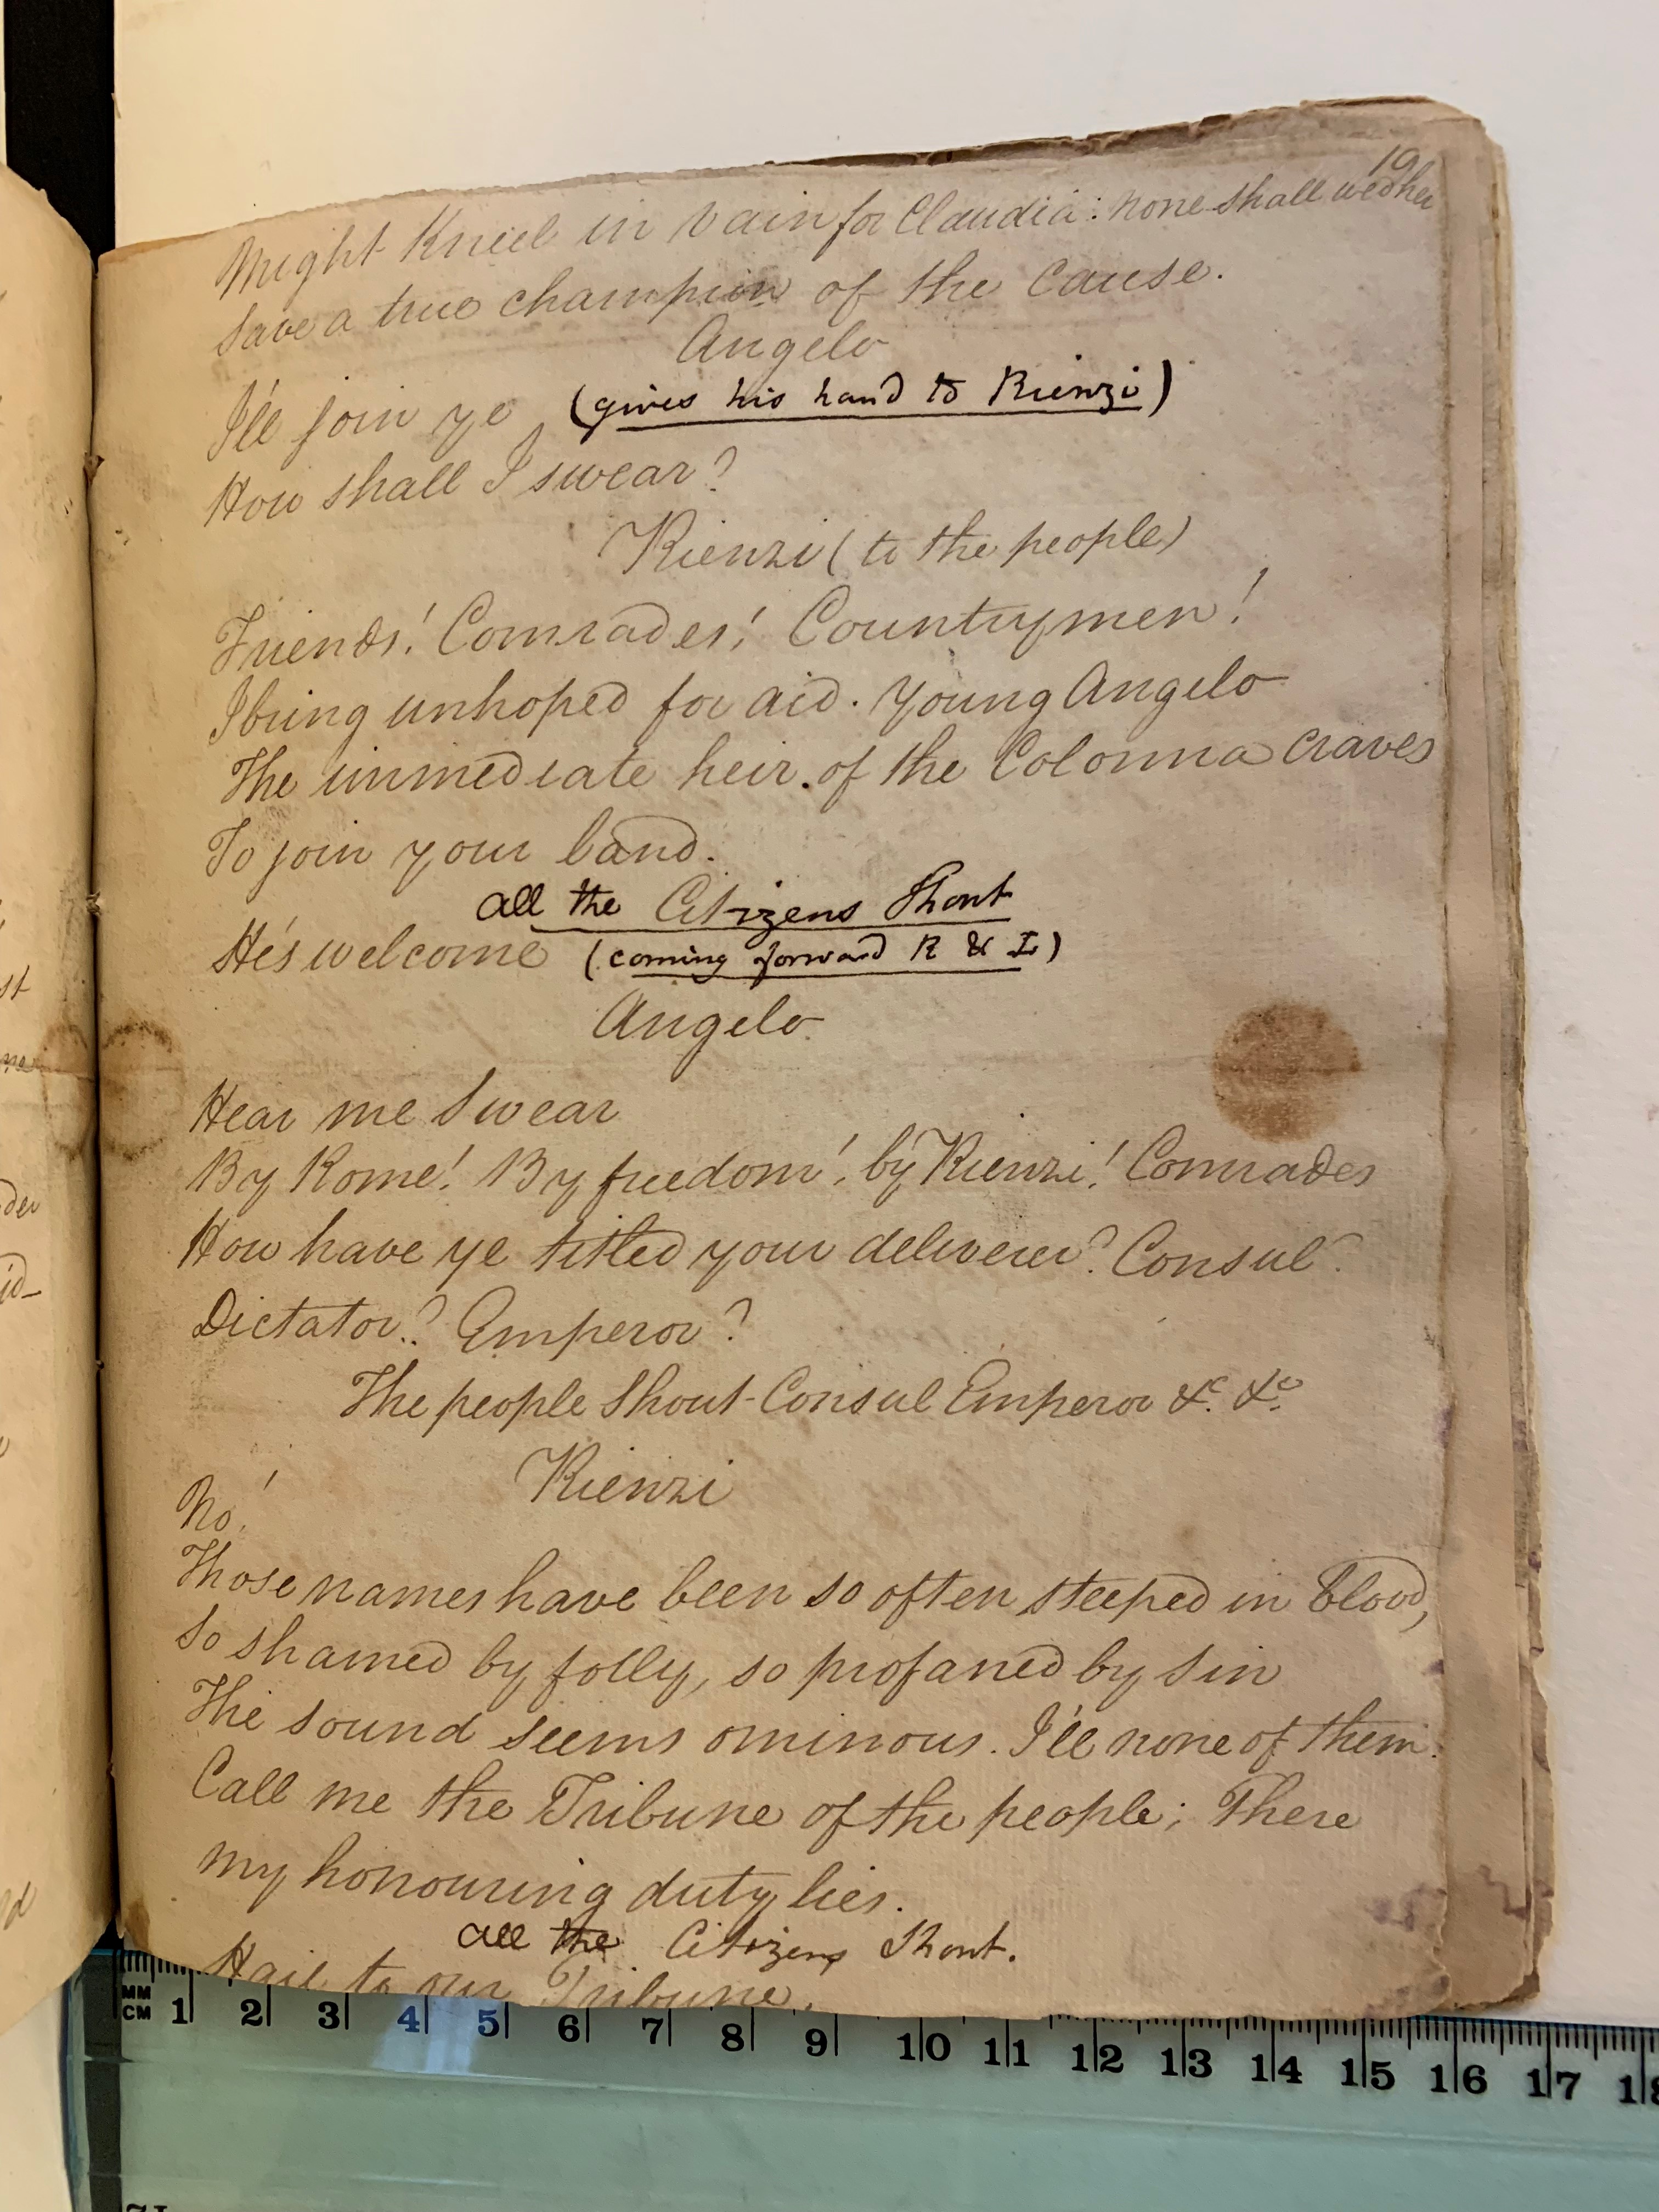 19
Might Kneel in vain for Claudia: none shall wed her
Save a true champion of the Cause.
Angelo
I'll join ye (gives his hand to Rienzi)
How shall I swear?
Rienzi (to the people)
Friends! Comrades! Countrymen!
I bring unhoped for aid. Young Angelo
The immediate heir of the Colonna craves
To join your band.
all the Citizens Shout
He's welcome (coming forward R & L)
Angelo
Hear me Swear
By Rome! By freedom! by Rienzi! Comrades
How have ye titled your deliverer? Consul?
Dictator? Emperor?
The people Shout - Consul Emperor &c. &c.
Rienzi
No!
Those names have been so often steeped in blood,
So shamed by folly, so profaned by sin
The sound seems ominous. I'll none of them.
Call me the Tribune of the people; There
my honouring duty lies.
all the Citizens Shout.
Hail to our Tribune.
MM
CM 1 2 3 4 5 6 7 8 9 10 11 12 13 14 15 16 17 18